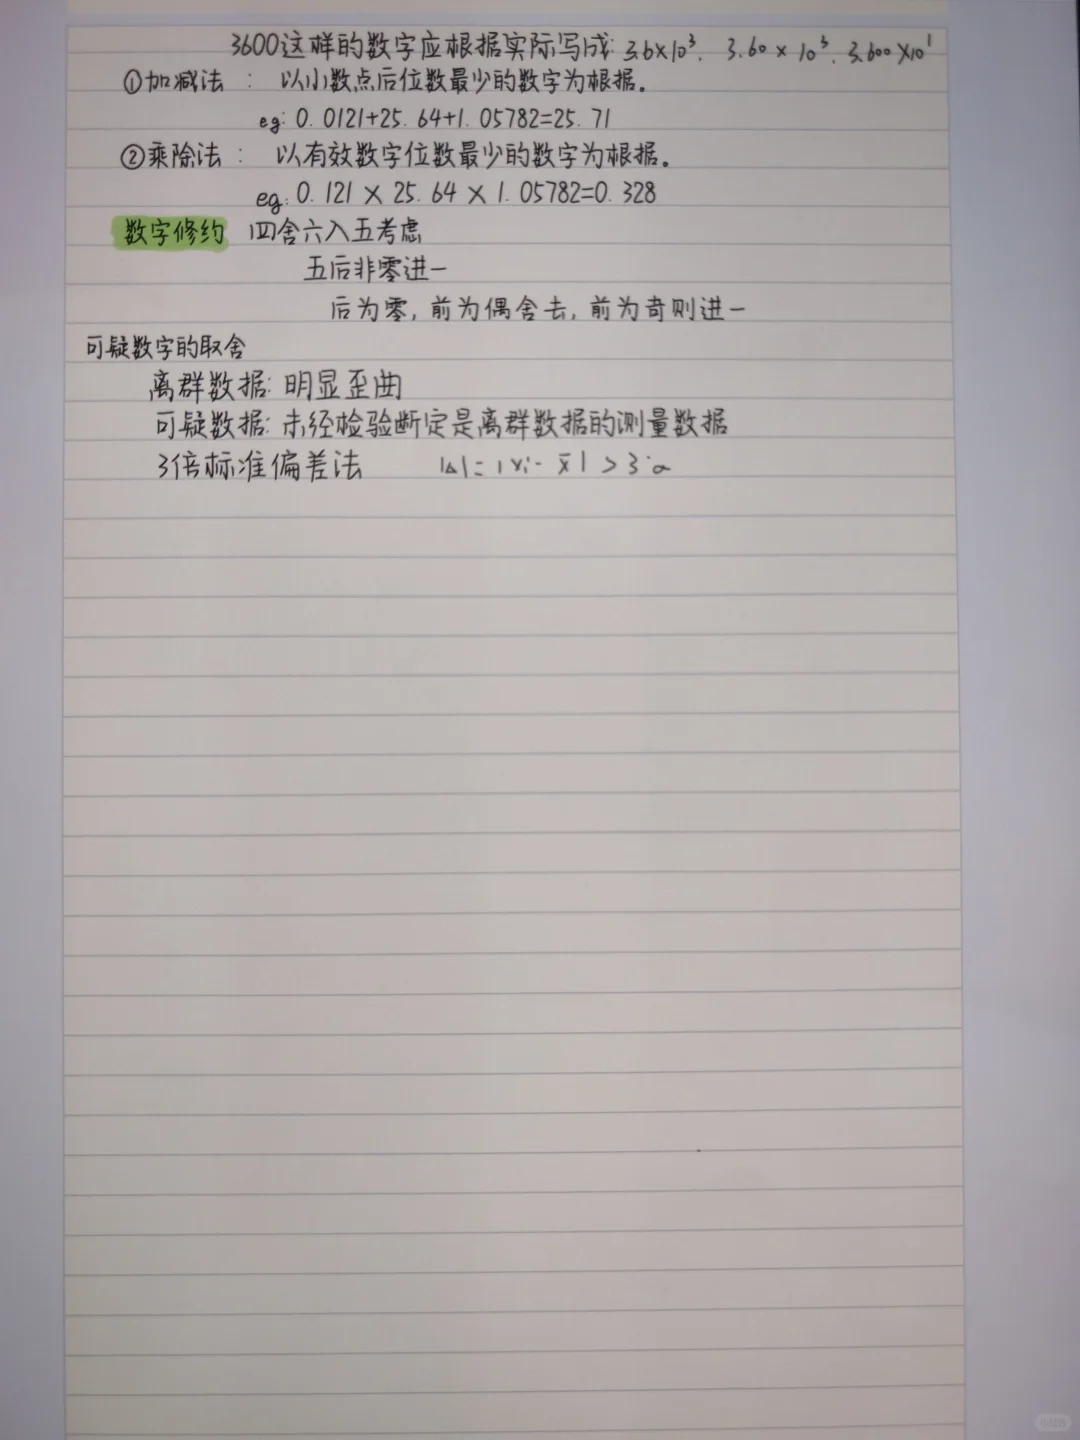 3600这样的数字应根据实际写成: 3.6×10³. 3.60×10³. 3.600×10¹
①加减法 : 以小数点后位数最少的数字为根据。
eg: 0.0121+25.64+1.05782=25.71
②乘除法 : 以有效数字位数最少的数字为根据。
eg: 0.121×25.64×1.05782=0.328
数字修约 四舍六入五考虑
五后非零进一
后为零, 前为偶舍去, 前为奇则进一
可疑数字的取舍
离群数据: 明显歪曲
可疑数据: 未经检验断定是离群数据的测量数据
3倍标准偏差法 |Δ|=|xi-x̄|>3σ